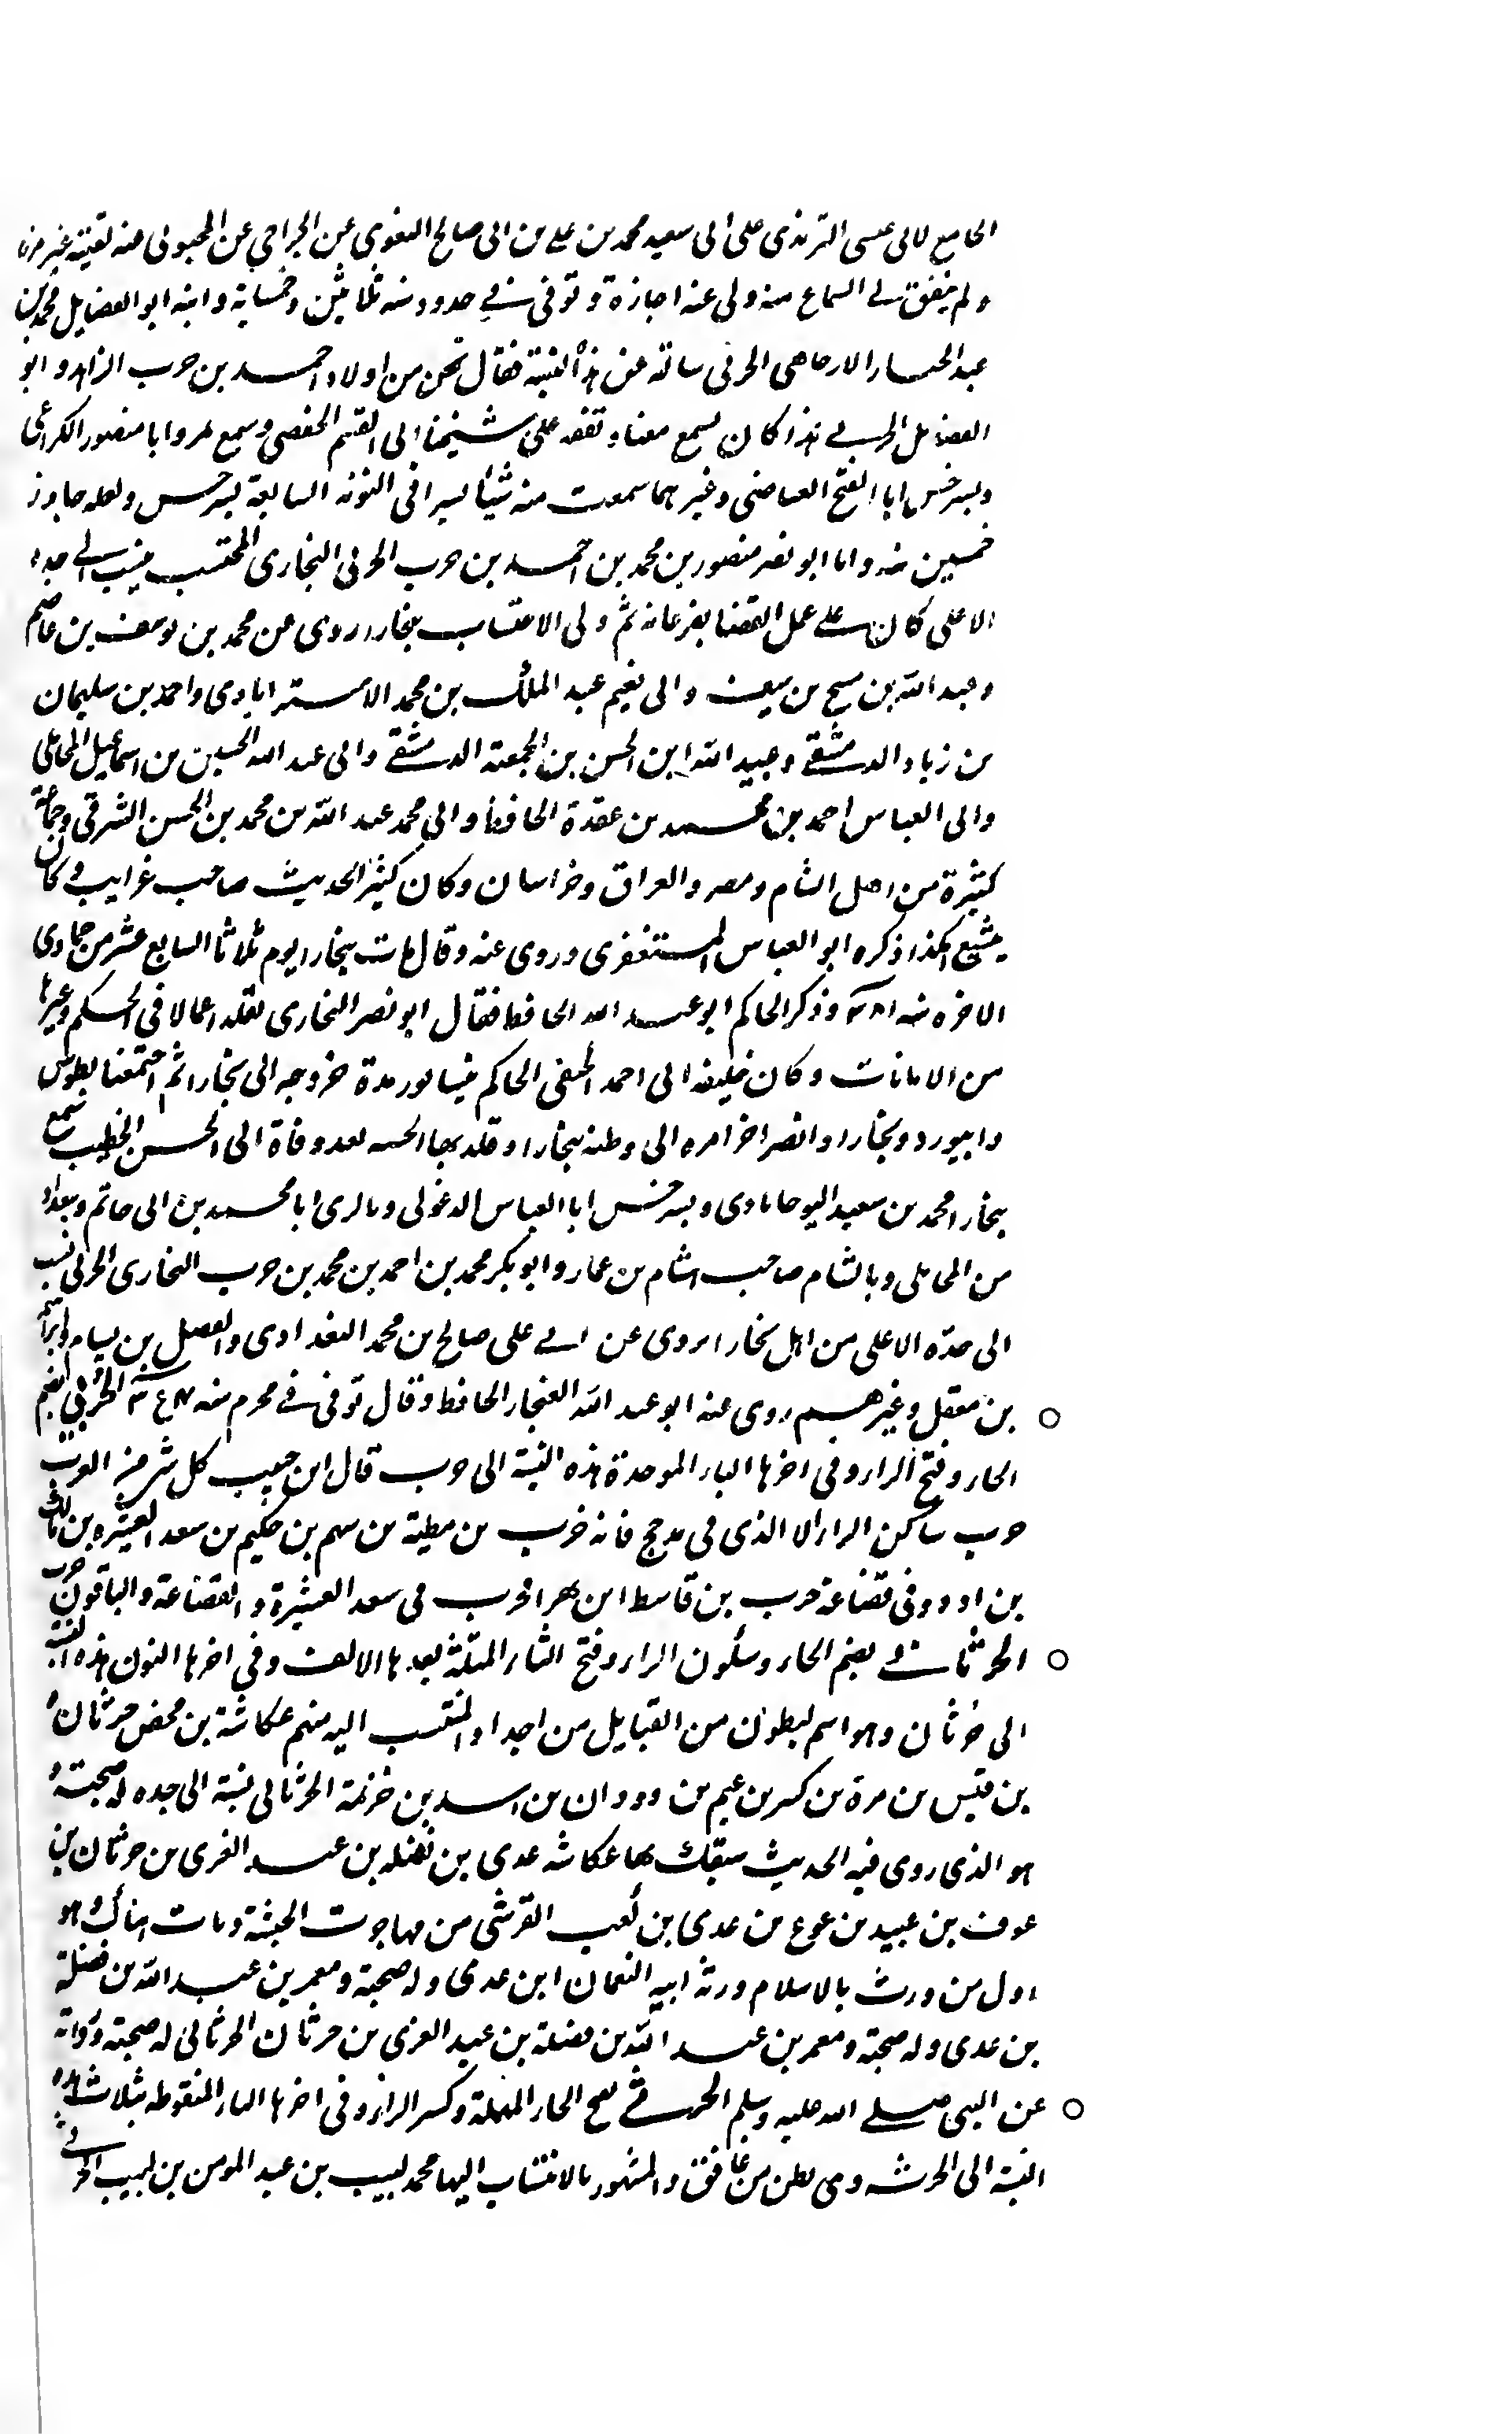 الجامع لابى عيسى الترمذى على ابى سعيد محمد بن على بن ابى صالح البغوى عن الجراحى عن المحبوبى منه لقيته غير مرة
ولم يتفق لى السماع منه ولى عنه اجازة وتوفى فى حدود سنه ثلاثين وخمسماية وابنه ابو الفضايل محمد بن
عبد الجبار الارجاهى الحربى سالته عن هذا النسبة فقال نحن من اولاد احمد بن حرب الزاهد وابو
الفضايل الحربى هذا كان يسمع معنا وتفقه على شيخنا ابى القسم الحفصى وسمع بمرو ابا منصور الكراعى
وبسرخس ابا الفتح العياضى وغيرهما سمعت منه شيئا يسيرا فى النوبة السابعة بسرخس ولعله جاوز
خمسين سنه واما ابو نصر منصور بن محمد بن احمد بن حرب الحربى البخارى المحتسب ينسب الى جده
الاعلى كان على عمل القضا بفرغانه ثم ولى الاحتساب ببخارا روى عن محمد بن يوسف بن عاصم
وعبد الله بن مسيح بن سيف وابى نعيم عبد الملك بن محمد الاستراباذى واحمد بن سليمان
بن زباد الدمشقى وعبيد الله ابن الحسن بن الجمعة الدمشقى وابى عبد الله الحسين بن اسماعيل المحاملى
وابى العباس احمد بن محمد بن عقدة الحافظ وابى محمد عبد الله بن محمد بن الحسن الشرقى وجماعة
كثيرة من اهل الشام ومصر والعراق وخراسان وكان كثير الحديث صاحب غرايب وكان
يتشيع هكذا ذكره ابو العباس المستغفرى وروى عنه وقال مات ببخارا يوم ثلاثا السابع عشر من جمادى
الاخره سنه ٣٨١ وذكر الحاكم ابو عبد الله الحافظ فقال ابو نصر البخارى تقلد اعمالا فى الحكم وغيرها
من الامانات وكان خليفه ابى احمد الحنفى الحاكم نيسابور مدة خروجه الى بخارا ثم اجتمعنا بطوس
وابيورد وبخارا وانصر اخر امره الى وطنه ببخارا وقلد بها الحسبه بعد وفاة ابى الحسن الخطيب سمع
بخارا محمد بن سعيد البوجاباذى وبسرخس ابا العباس الدغولى وبالرى ابا محمد بن ابى حاتم وببغداد
من المحاملى وبالشام صاحب هشام بن عمار وابو بكر محمد بن احمد بن محمد بن حرب البخارى الحربى نسب
الى جده الاعلى من اهل بخارا يروى عن ابى على صالح بن محمد البغدادى والفضل بن بسام وابراهيم
بن معقل وغيرهم روى عنه ابو عبد الله الغنجار الحافظ وقال توفى فى محرم سنه الحُرَبى بضم
الحاء وفتح الراء وفى اخرها الباء الموحدة هذه النسبة الى حرب قال ابن حبيب كل شى من العرب
حرب ساكن الراء الا الذى فى مذحج فانه حرب بن مظة بن سهم بن حكيم بن سعد العشيره بن مالك
بن ادد وفى قضاعة حرب بن قاسط ابن بهرا فحرب فى سعد العشيرة و القضاعة والباقون حرب
الحرثانى بضم الحاء وسكون الراء وفتح الثاء المثلثة بعدها الالف وفى اخرها النون هذه النسبة
الى حرثان وهو اسم لبطون من القبايل من اجداد المنتسب اليه منهم عكاشة بن محصن حرثان
بن قيس بن مرة بن كبير بن غنم بن دودان بن اسد بن خزيمة الحرثانى نسبة الى جده له صحبة
هو الذى روى فيه الحديث سبقك بها عكاشه عدى بن نضله بن عبد العزى بن حرثان بن
عوف بن عبيد بن عويج بن عدى بن كعب القرشى من مهاجرت الحبشة ومات هناك وهو
اول من ورث بالاسلام ورثه ابيه النعمان ابن عدى وله صحبة ومعمر بن عبد الله بن فضلة
بن عدى وله صحبة ومعمر بن عبد الله بن فضلة بن عبد العزى بن حرثان الحرثانى له صحبة ورواية
عن النبى صلى الله عليه وسلم الحرثى بفتح الحاء المهملة وكسر الراء وفى اخرها الهاء المنقوطه بثلاث هذه
النسبة الى الحرث وهى بطن من غافق والمشهور بالانتساب اليها محمد لبيب بن عبد المومن بن لبيب الحرثى